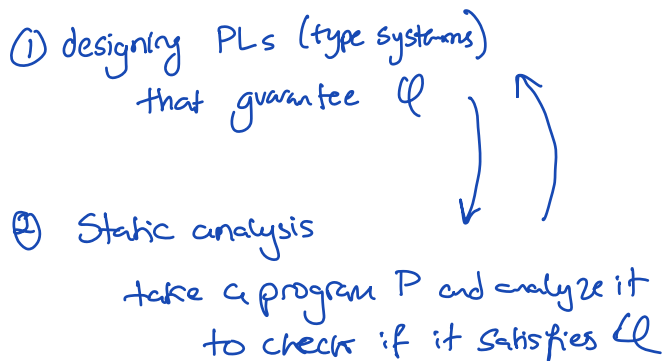 ① designing PLs (type systems)
that guarantee φ
② Static analysis
take a program P and analyze it
to check if it satisfies φ